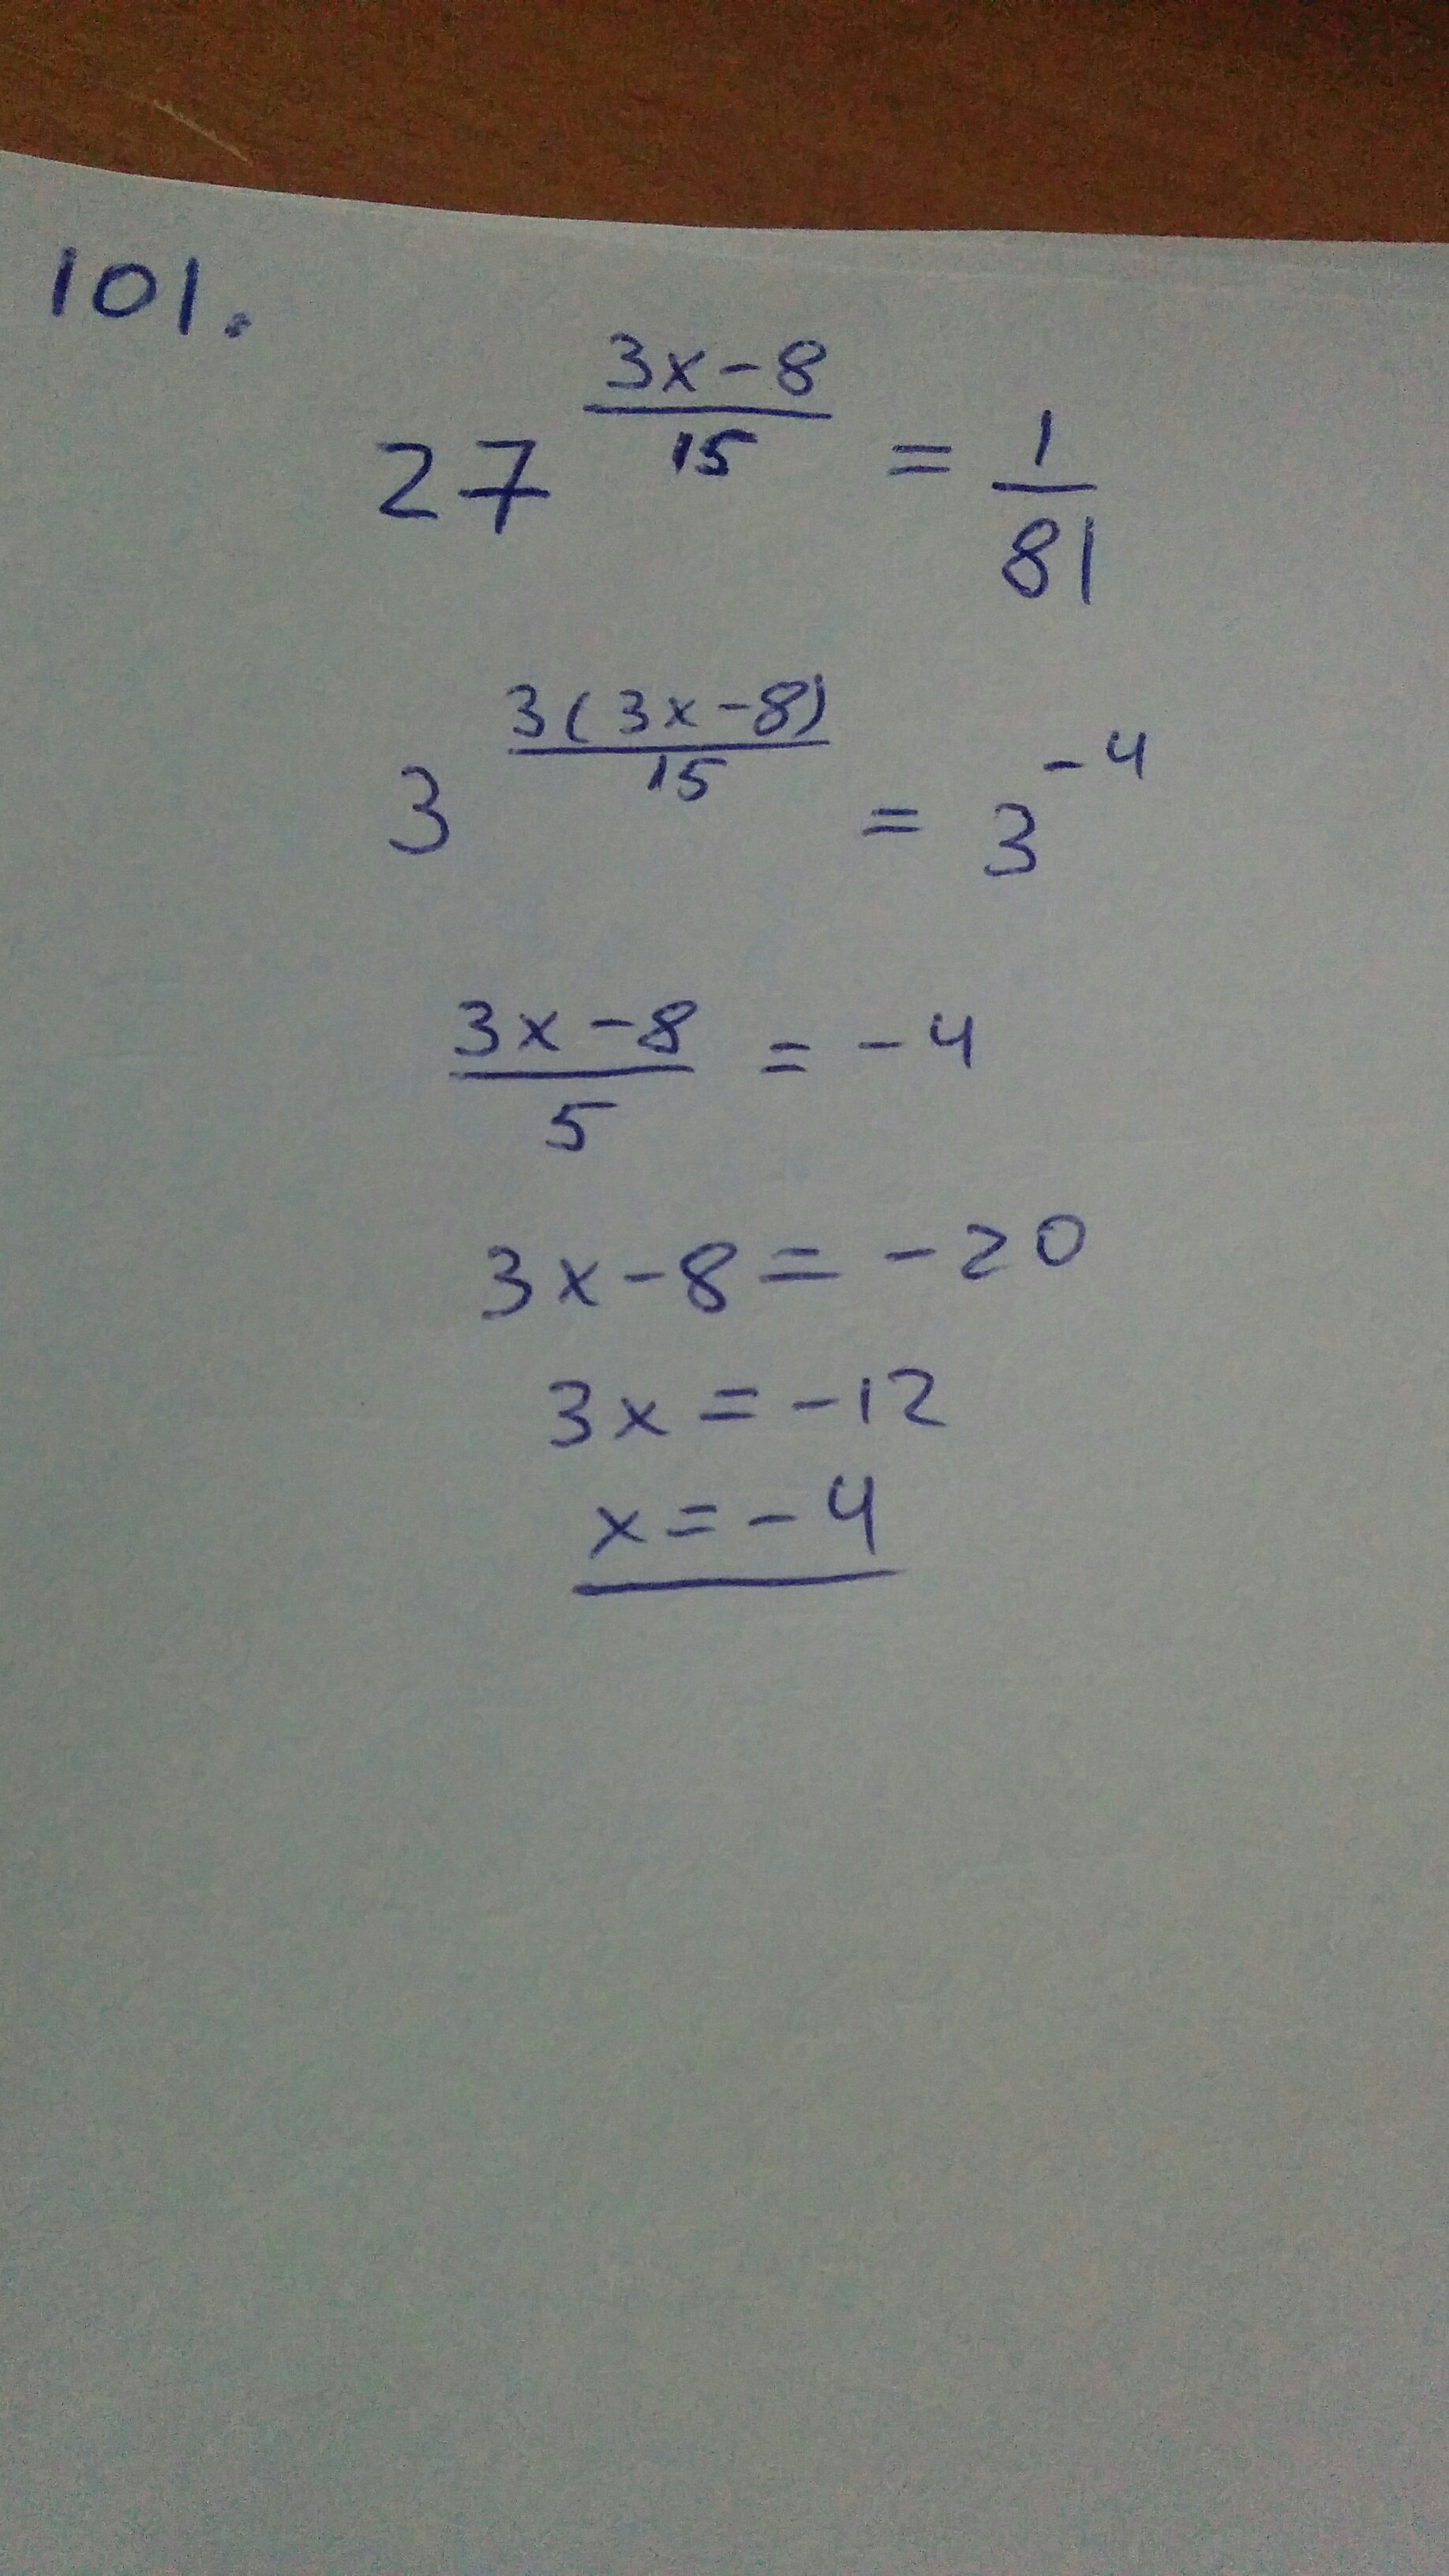 101.
27^((3x-8)/15) = 1/81
3^(3(3x-8)/15) = 3^-4
(3x-8)/5 = -4
3x-8 = -20
3x = -12
x = -4